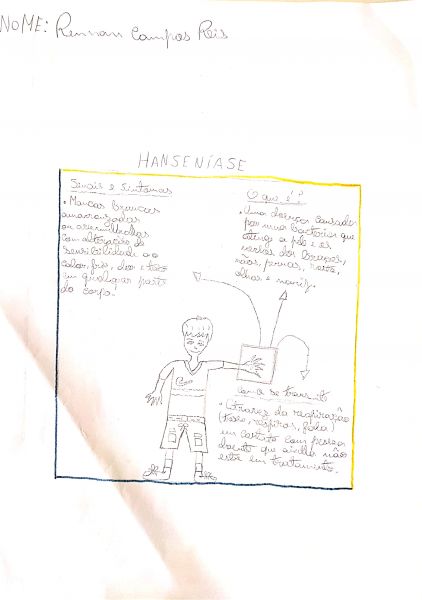 NOME: Rennan Campos Reis
HANSENÍASE
Sinais e Sintomas
• Mancas brancas
amarronzadas
ou avermelhadas
com alteração de
sensibilidade ao
calor, frio, dor e toque
em qualquer parte
do corpo.
O que é?
• Uma doença causada
por uma bactérias que
atinge a pele e os
nervos dos braços,
mãos, pernas, rosto,
olhos e nariz.
como se transmite
• Através da respiração
(tosse, espirros, fala)
em contato com pessoa
doente que ainda não
está em tratamento.